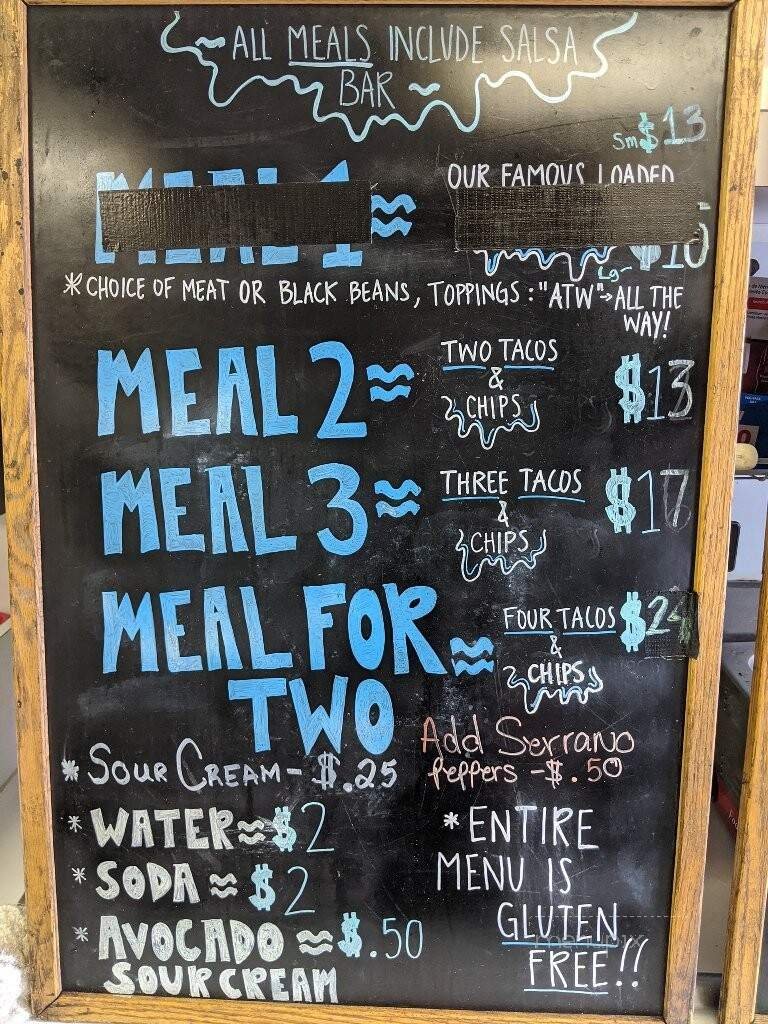 ~ALL MEALS INCLUDE SALSA
BAR~
Sm $13
MEAL 1 ≈ OUR FAMOUS LOADED
Lg
*CHOICE OF MEAT OR BLACK BEANS, TOPPINGS: "ATW"→ALL THE
WAY!
MEAL 2 ≈ TWO TACOS
&
CHIPS
$13
MEAL 3 ≈ THREE TACOS
&
CHIPS
$17
MEAL FOR
TWO ≈ FOUR TACOS
&
CHIPS
*SOUR CREAM-$.25
Add Serrano
Peppers -$.50
*WATER≈$2
*SODA≈$2
*AVOCADO≈$.50
SOUR CREAM
*ENTIRE
MENU IS
GLUTEN
FREE!!